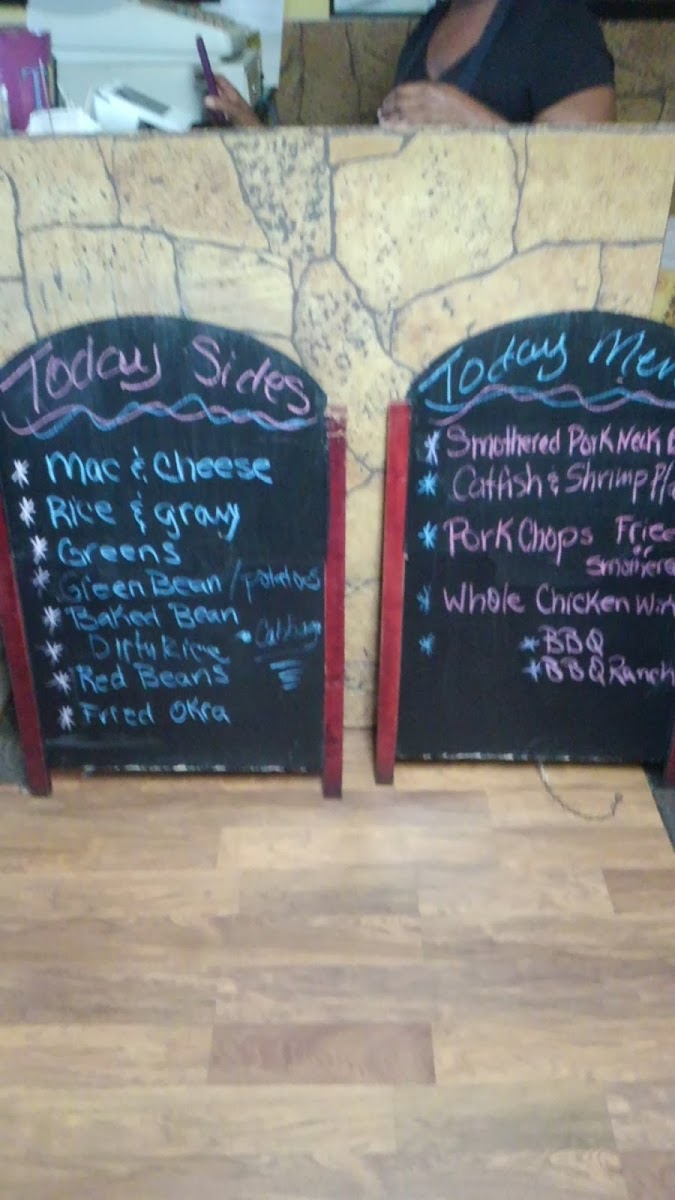 Today Sides
* Mac & Cheese
* Rice & gravy
* Greens
* Green Bean / potatoes
* Baked Bean
* Dirty Rice • Cabbage
* Red Beans
* Fried Okra
Today Men
* Smothered Pork Neck B
* Catfish & Shrimp Pla
* Pork Chops Fried
or
Smothered
* Whole Chicken Win
* * BBQ
* BBQ Ranch